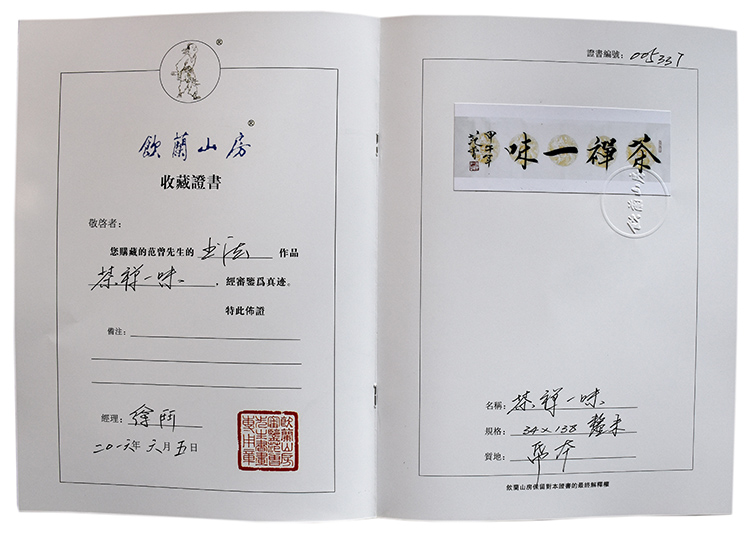 ®
飲蘭山房®
收藏證書
敬啓者：
您購藏的范曾先生的 书法 作品
茶禅一味 ，經審鑒爲真迹。
特此佈證
備注：
經理：
二〇一六年六月五日
飲蘭山房
證書編號：005337
茶禪一味
甲午年
范曾
名稱：茶禅一味
規格：34×138 釐米
質地：纸本
飲蘭山房保留對本證書的最終解釋權